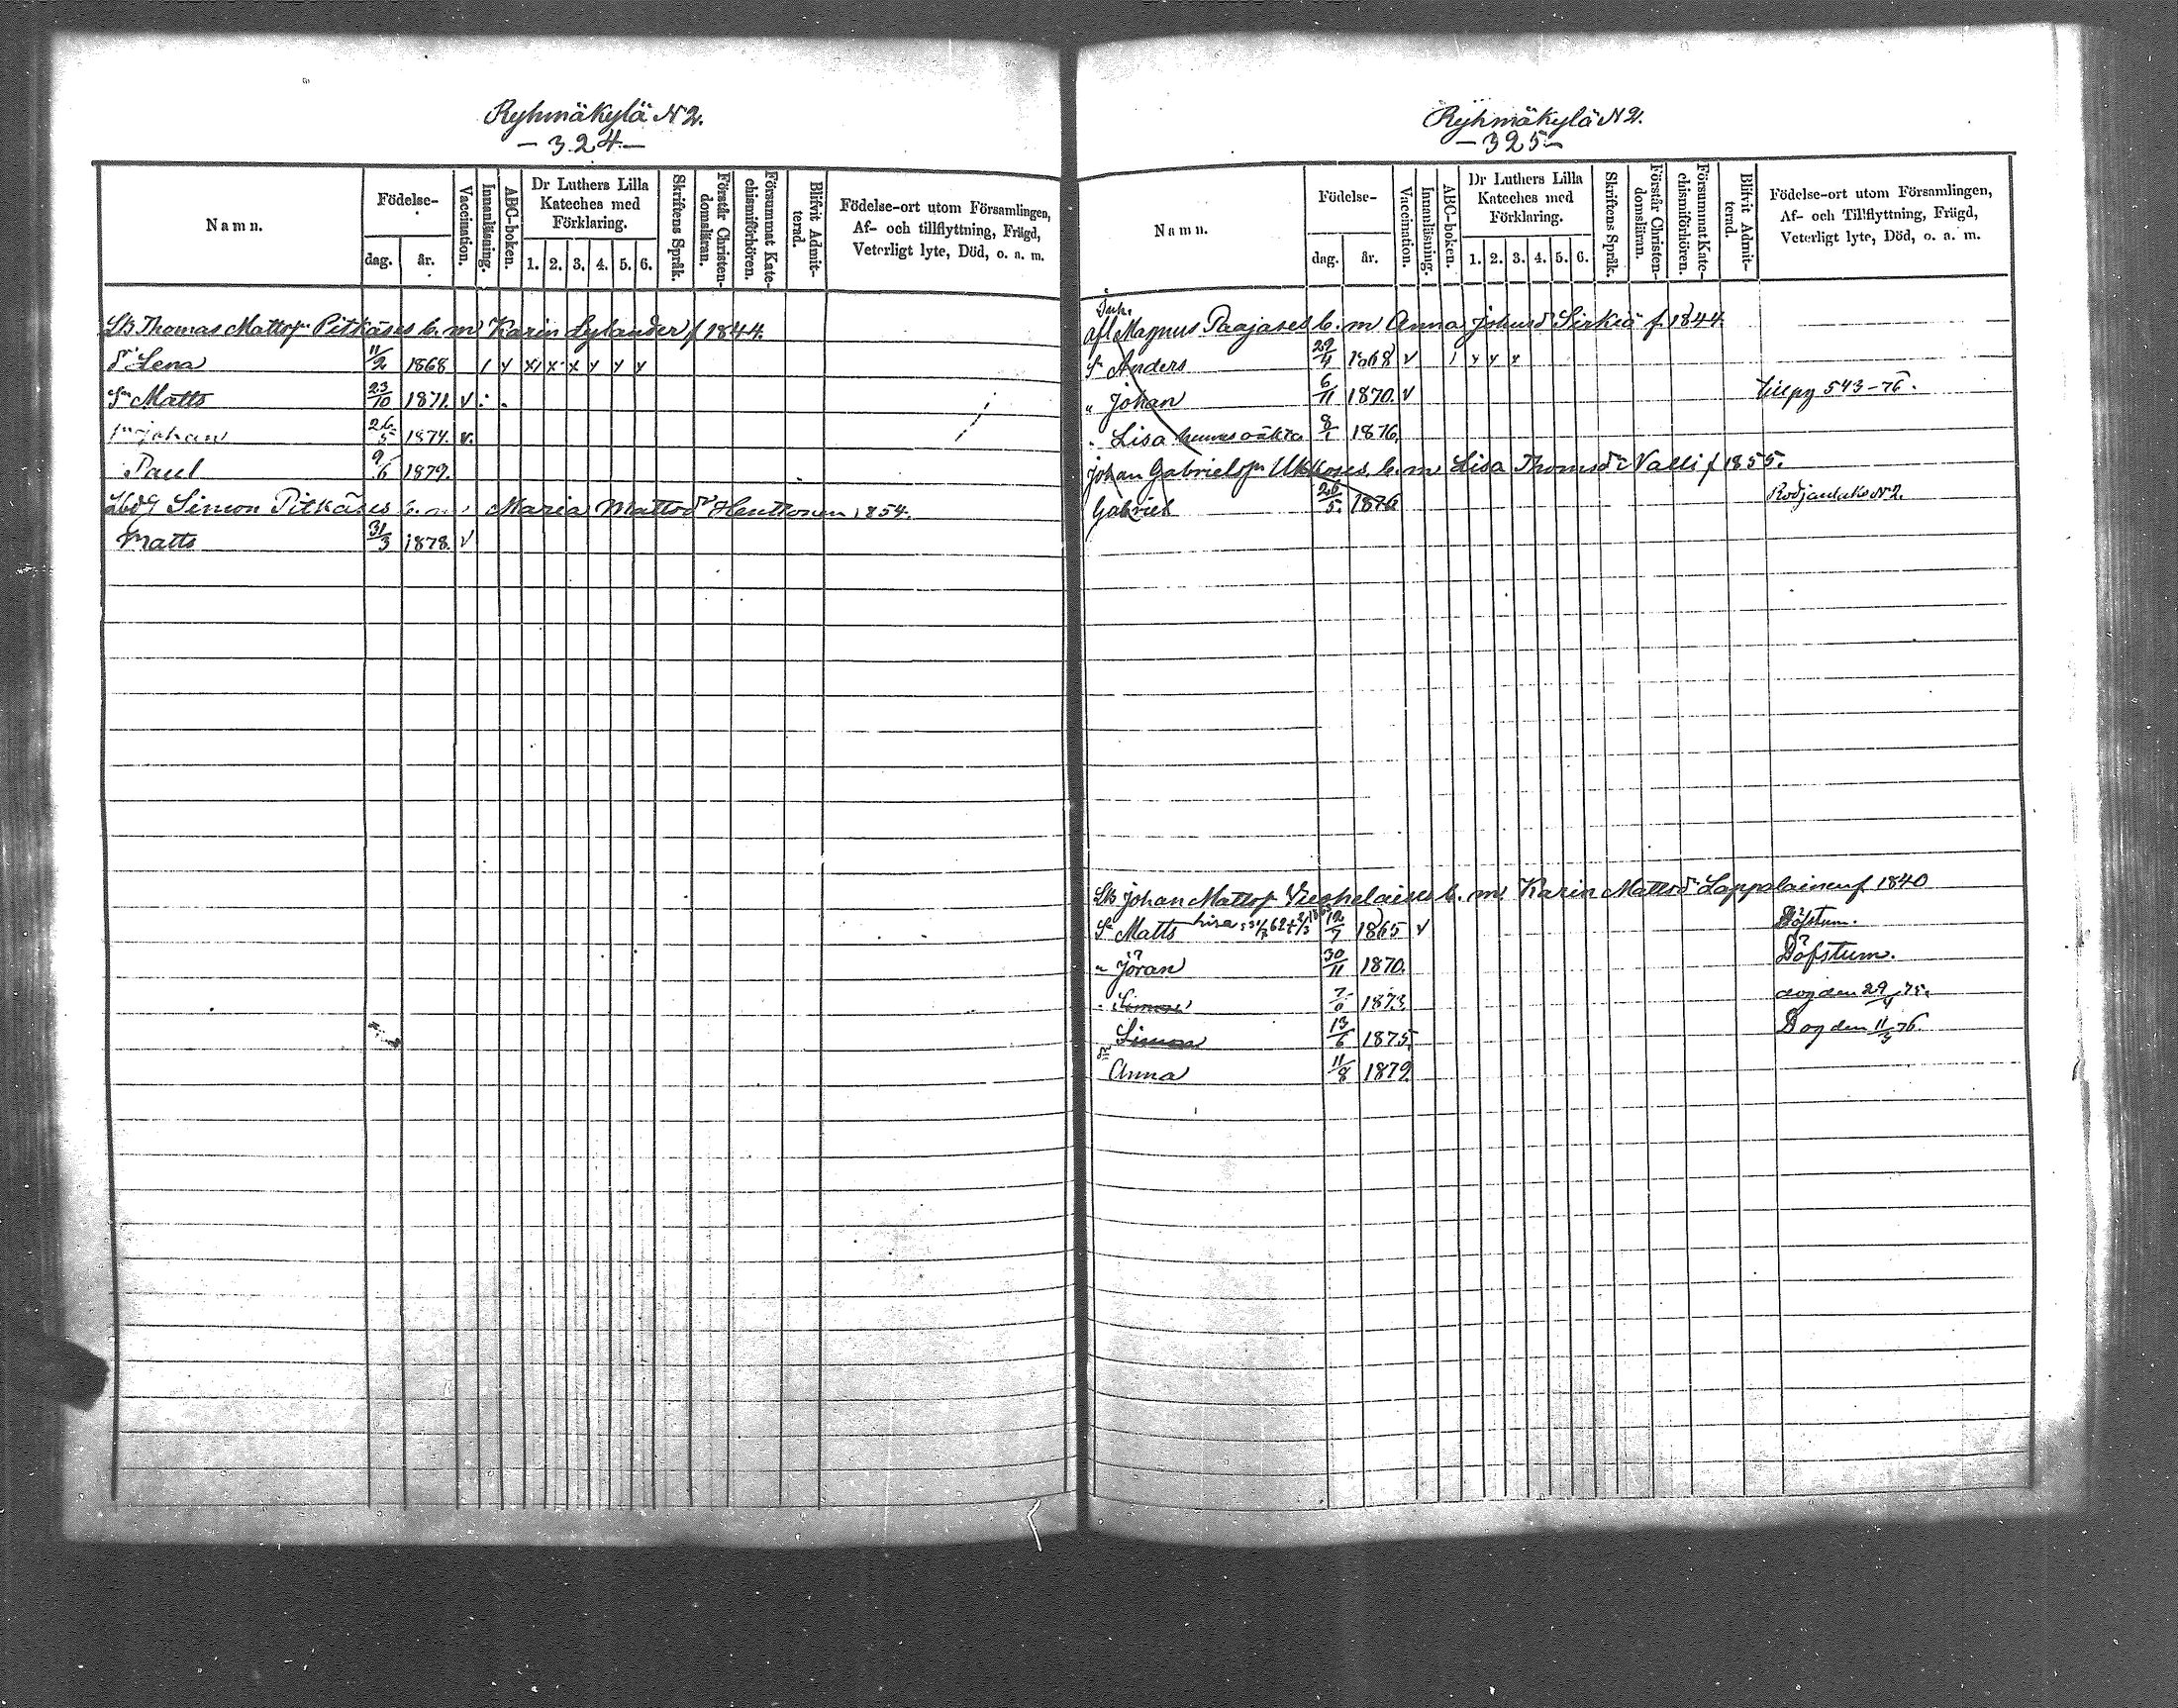 Ryhmäkylä N 2.
- 324 -
Namn.
Födelse-
dag.
år.
Vaccination.
Innanläsning.
ABC-boken.
Dr Luthers Lilla
Kateches med
Förklaring.
1. 2. 3. 4. 5. 6.
Skriftens Språk.
Förstår Christen-
domsläran.
Försummat Kate-
chismiförhören.
Blifvit Admit-
terad.
Födelse-ort utom Församlingen,
Af- och tillflyttning, Frägd,
Veterligt lyte, Död, o. a. m.
Thomas Pitkäses b. m. Karin Lylander f 1844.
dr Lena 11/2 1868 1 y x x x y y y
Sn Matts 23/10 1871. v
Johan 26/5 1874. v.
Paul 9/6 1879.
Simon Pitkäses Maria Mattsdr 1854.
Matts 31/3 1878. v
Ryhmäkylä N 2.
- 325 -
Namn.
Födelse-
dag.
år.
Vaccination.
Innanläsning.
ABC-boken.
Dr Luthers Lilla
Kateches med
Förklaring.
1. 2. 3. 4. 5. 6.
Skriftens Språk.
Förstår Christen-
domsläran.
Försummat Kate-
chismiförhören.
Blifvit Admit-
terad.
Födelse-ort utom Församlingen,
Af- och Tillflyttning, Frägd,
Veterligt lyte, Död, o. a. m.
Inh.
afl Magnus Paajases b. m Anna Johansd Sirkiä f. 1844.
Sn Anders 29/4 1868 v 1 y y x
" Johan 6/11 1870. v 543-76.
" Lisa 8/1 1876
Johan Gabrielsn Ukkoses b. m Lisa Thomsdr Valli f 1855.
Gabriel 26/5. 1876 N 2.
Johan Mattsn b. m. Karin Mattsdr Lappalainen f 1840
Sn Matts 12/7 1865 v Döfstum.
" Jöran 30/11 1870. Döfstum.
" Simon 1873. dog den 29/4 75.
Simon 13/6 1875. Dog den 11/3 76.
dr
Anna 11/8 1879.